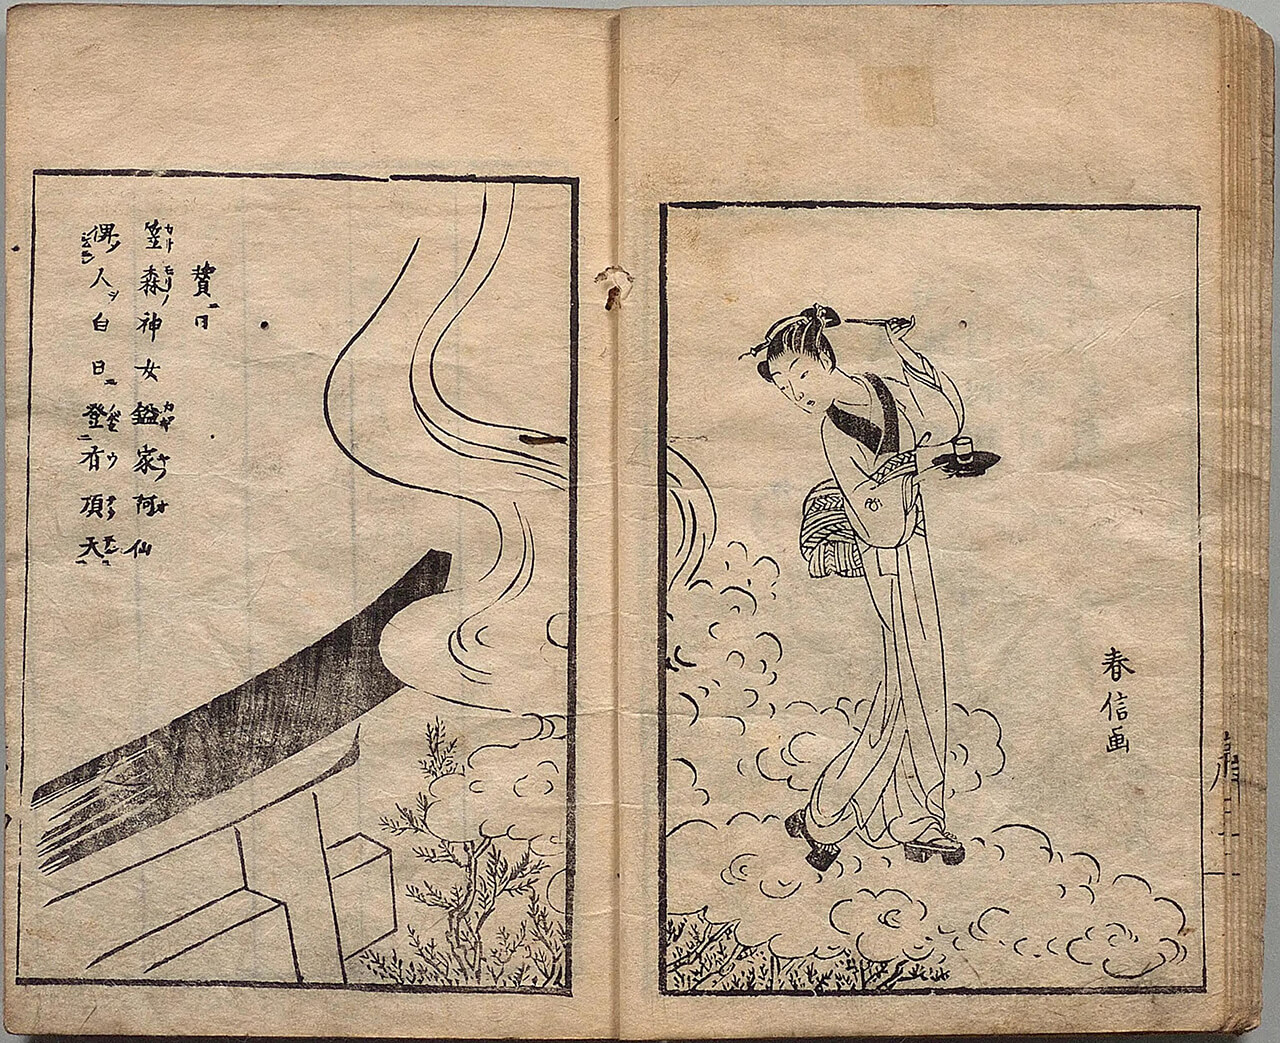 賛ニ曰
笠森神女鎰家阿仙
俾人白日登有頂天
春信画